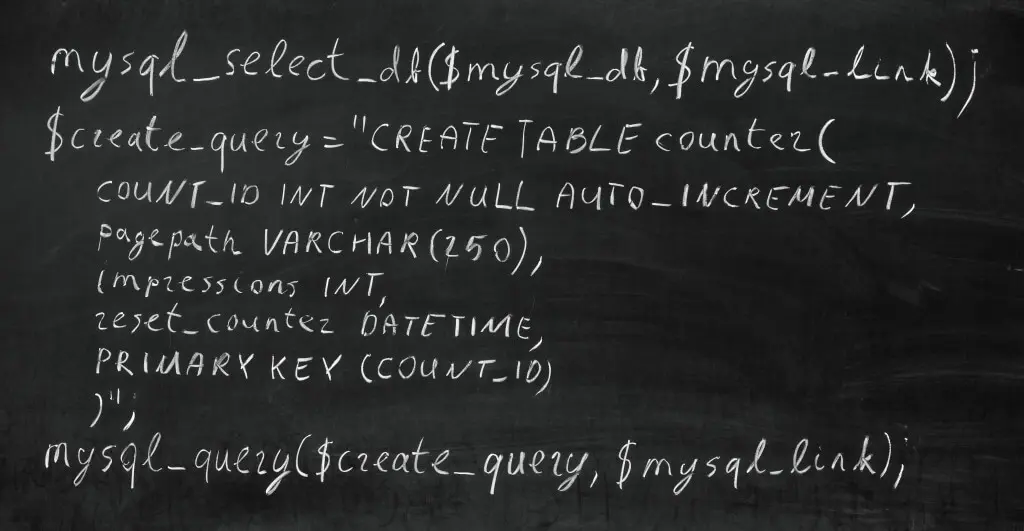 mysql_select_db($mysql_db,$mysql_link);
$create_query="CREATE TABLE counter(
COUNT_ID INT NOT NULL AUTO_INCREMENT,
pagepath VARCHAR(250),
impressions INT,
reset_counter DATETIME,
PRIMARY KEY (COUNT_ID)
)";
mysql_query($create_query, $mysql_link);